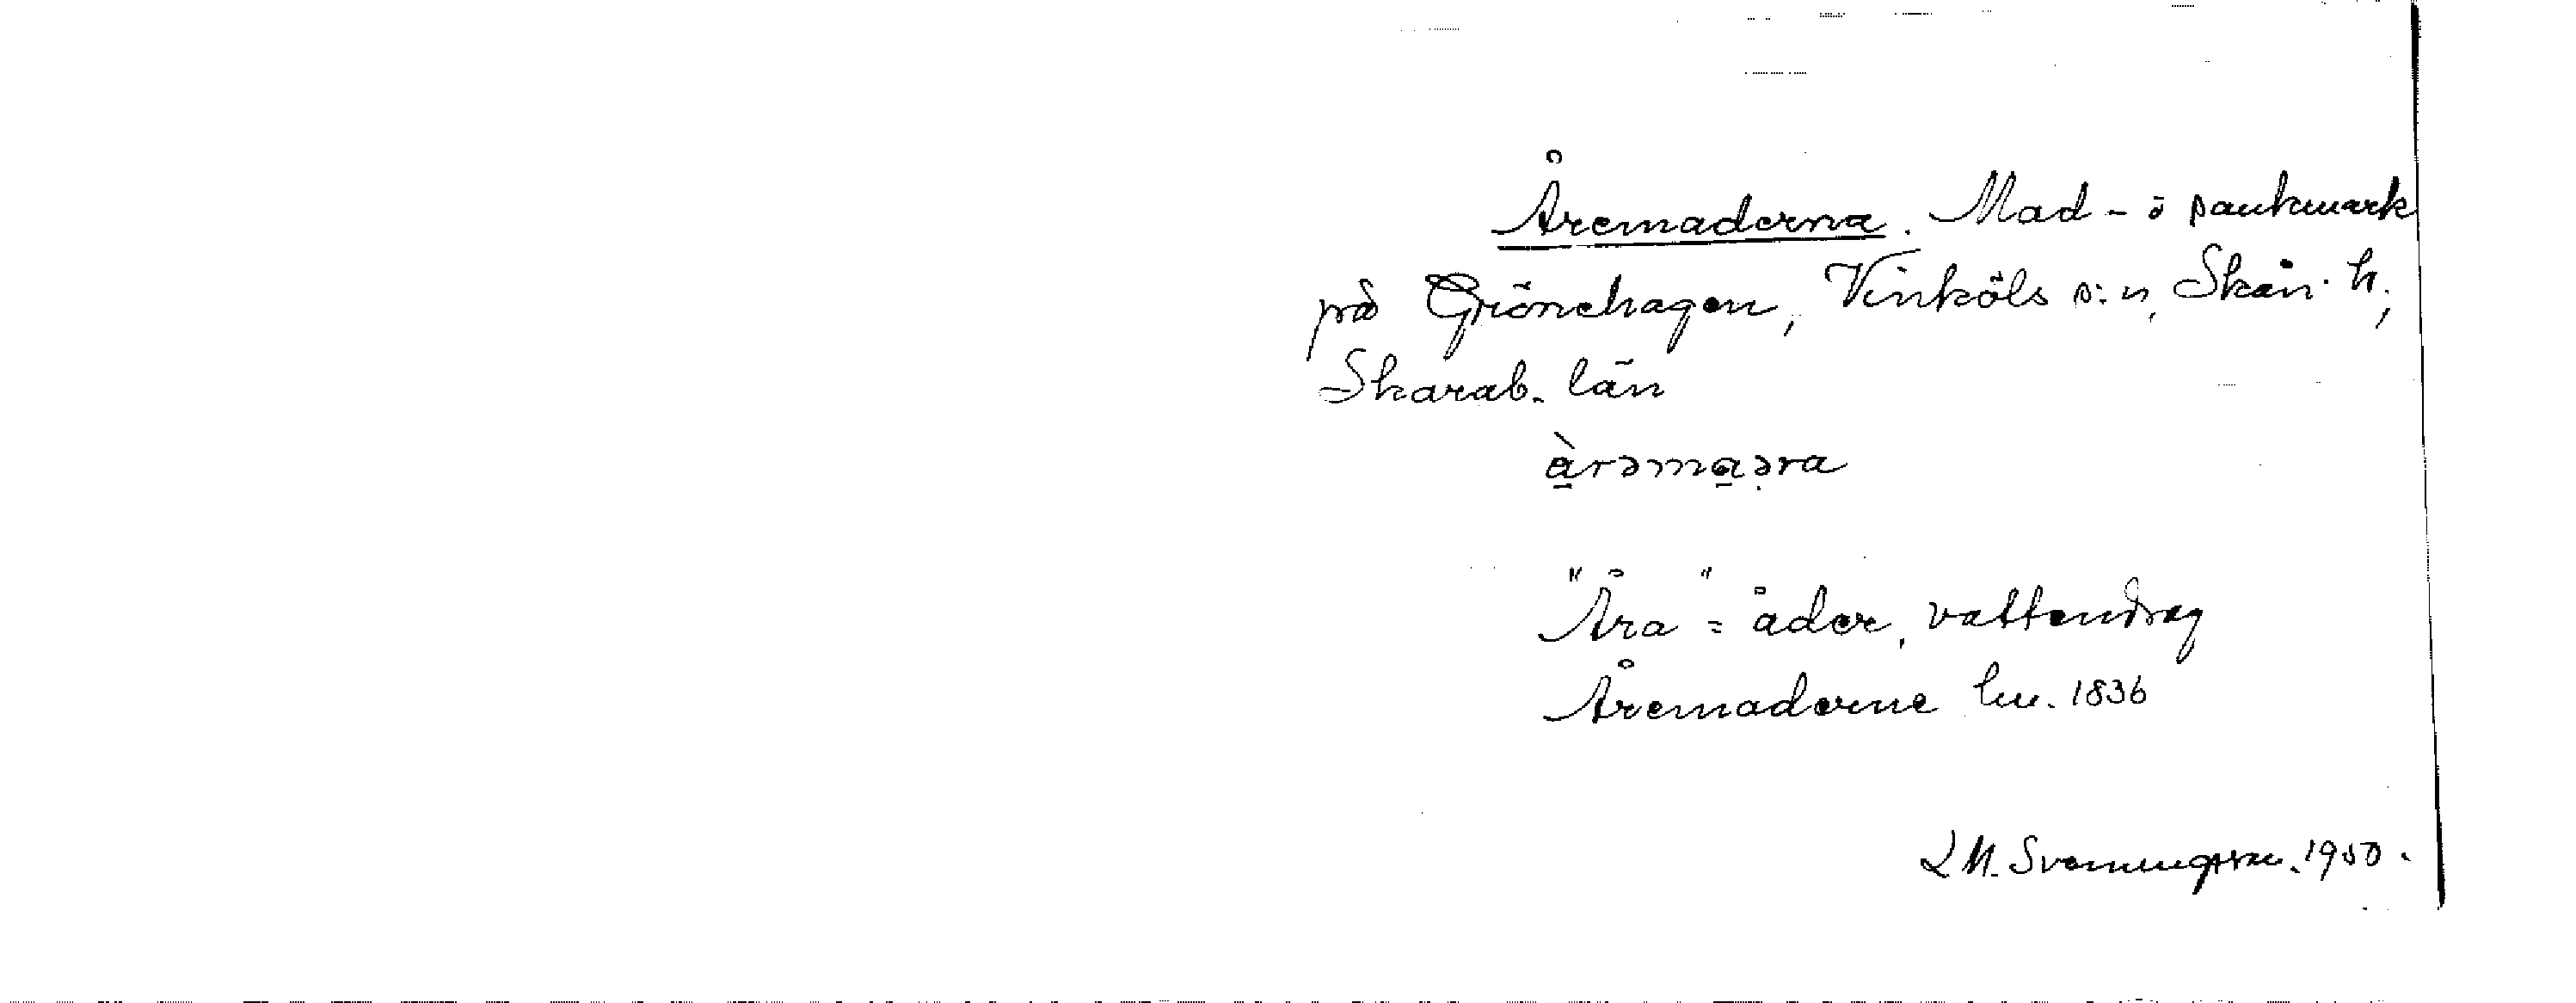 Åremaderna. Mad- o sankmark
på Grönehagen, Vinköls s:n, Skån. h.,
Skarab. län
àrəmaəra
"Åra" = åder, vattendrag
Åremaderne lm. 1836
L M. Svenungsson. 1950.